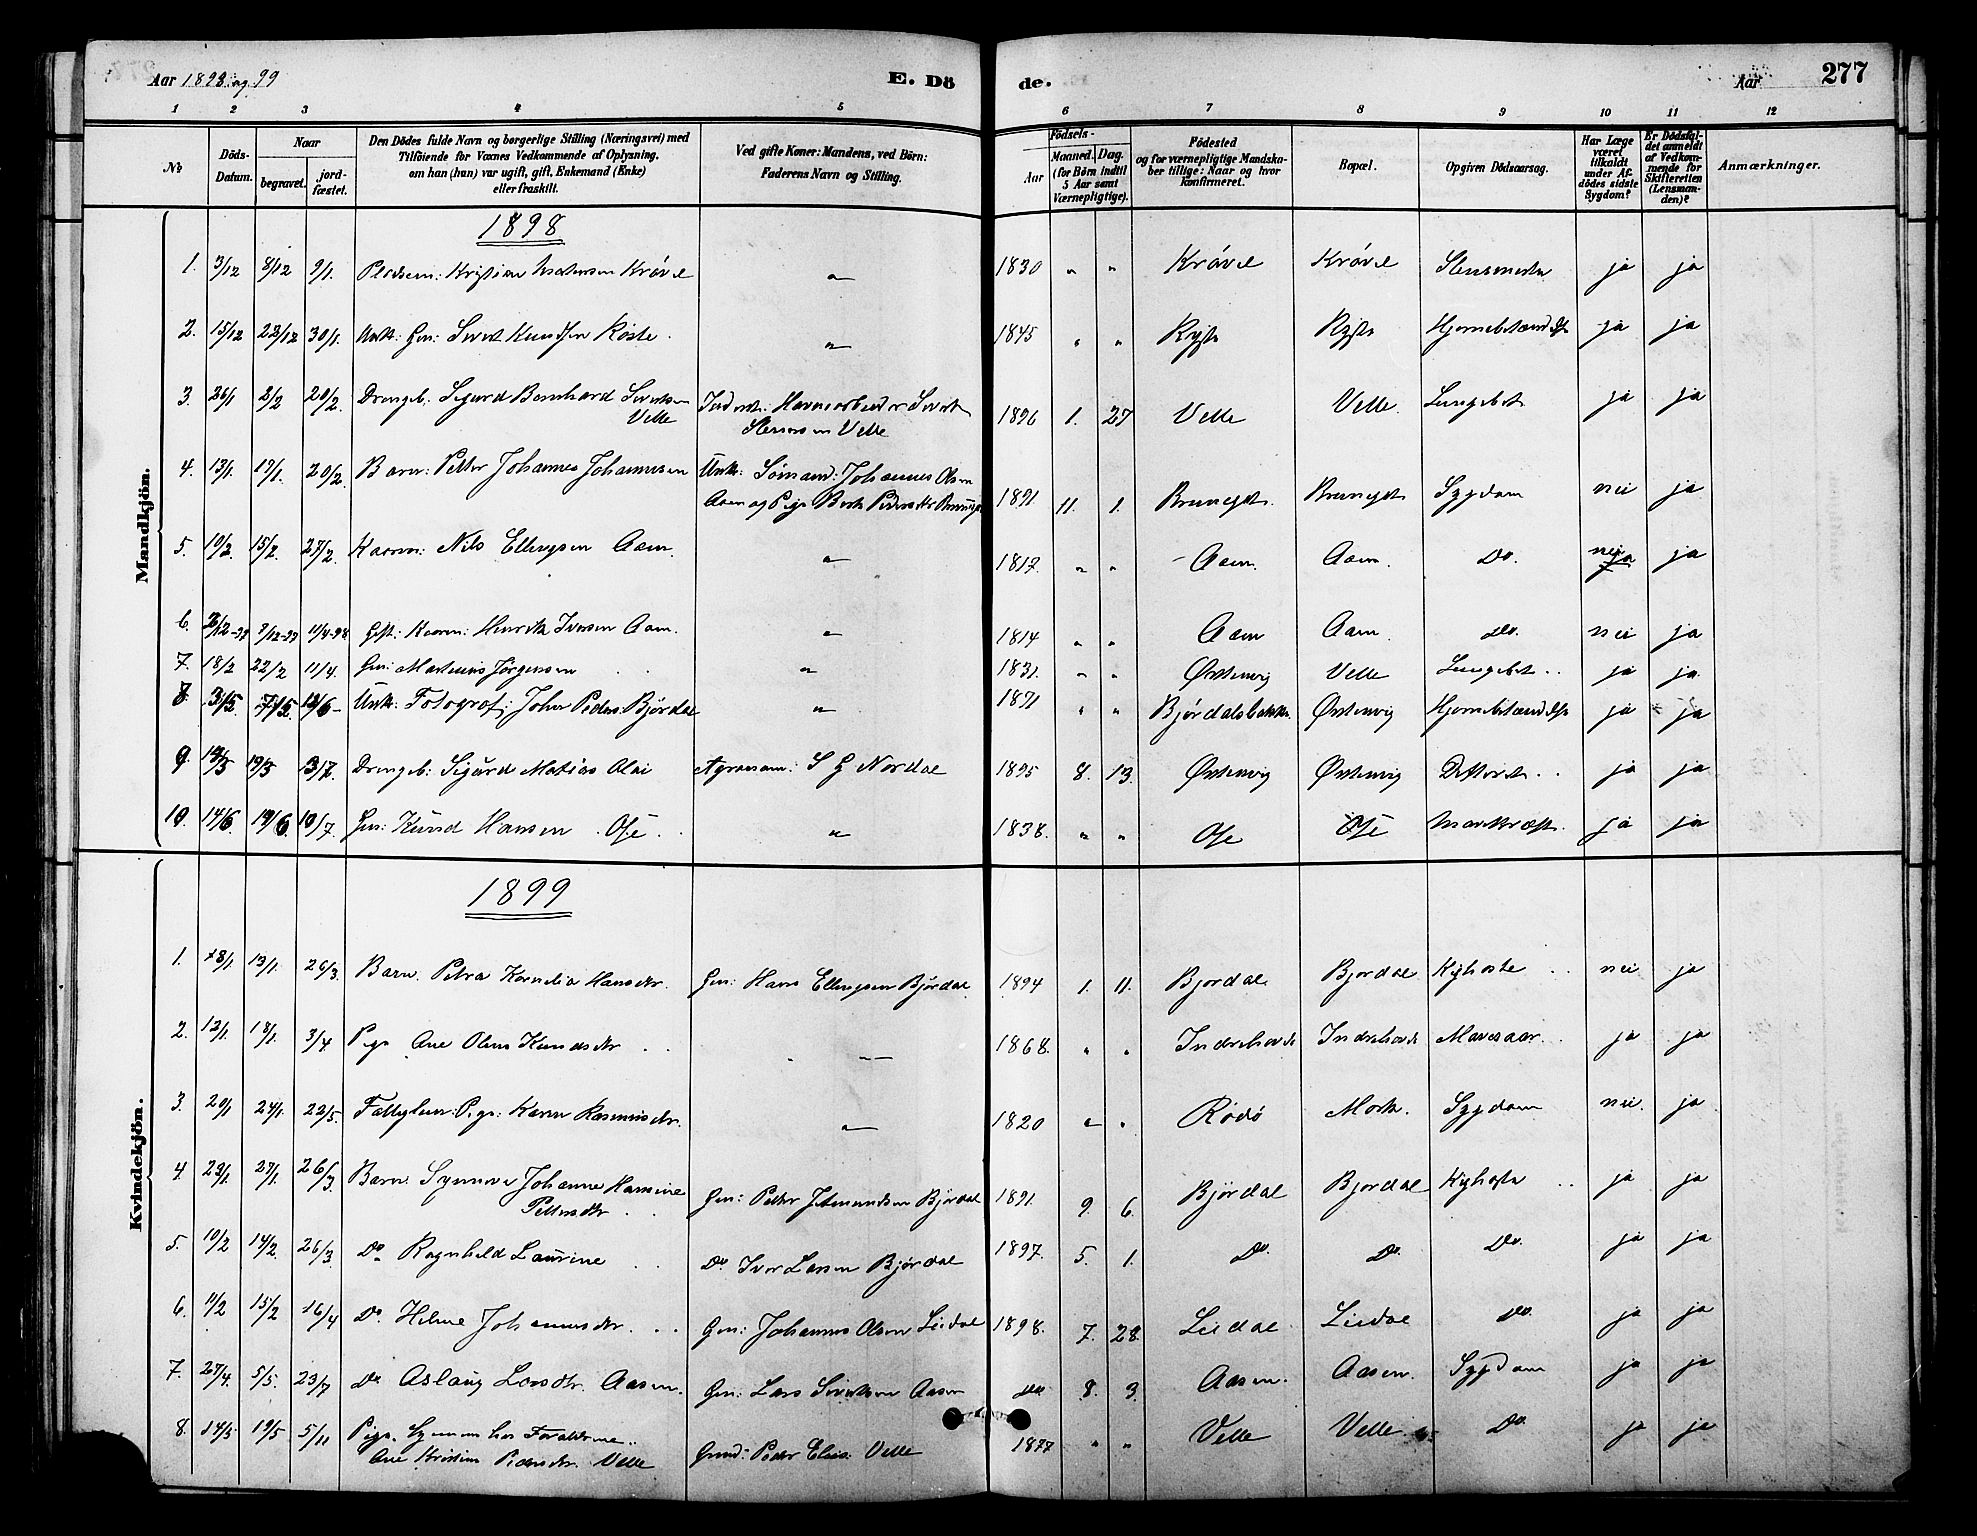 Aar 1898 og 99
E. Dö
de.
Aar
277
1 2 3 4 5 6 7 8 9 10 11 12
No
Döds-Datum.
Naar
begravet.
jordfæstet.
Den Dödes fulde Navn og borgerlige Stilling (Næringsvei) med
Tilföiende for Voxnes Vedkommende af Oplysning,
om han (hun) var ugift, gift, Enkemand (Enke)
eller fraskilt.
Ved gifte Koner: Mandens, ved Börn:
Faderens Navn og Stilling.
Födsels-
Aar
Maaned. Dag.
(for Börn indtil
5 Aar samt
Værnepligtige).
Födested
og for værnepligtige Mandskaber tillige: Naar og hvor
konfirmeret.
Bopæl.
Opgiven Dödsaarsag.
Har Læge
været
tilkaldt
under Afdödes sidste
Sygdom?
Er Dödsfaldet anmeldt
af Vedkommende for
Skifteretten
(Lensmanden)?
Anmærkninger.
Mandkjön.
1898
1. 3/12 8/12 9/1. Kristian Krøvel " 1830 " " Krøvel Krøvel ja ja
2. 15/12 22/12 30/1. Sivert Knudsen Røste " 1845 " " Hjernebetændelse ja ja
3. 26/1 2/2 20/2. Drengeb: Sigurd Bernhard Sivertsen Velle
Havnearbeider Sivert Velle 1896 1. 27 Velle Velle. Lungebet ja ja
4. 13/1. 19/1. 20/2. Barn: Petter Johannes Johannesen
Sømand: Johannes Olsen
Aam og Pige 1891 11. 1. Sygdom nei ja
5. 10/2. 15/2. 27/2. Kaarm: Nils Ellingsen Aam. " 1817. " " Aam. Aam. Do. nei ja ja
6. 2/12-97 9/12-97 11/4-98 Gift: Kaarm: Henrik Iversen Aam. " 1814 " " Aam Aam. Do. nei ja
7. 18/2 22/2 11/4. Gm: Martinus Jørgensen " 1831. " " Østenvig Velle Lungebet.. ja ja
8. 3/5. 7/5. 12/6 Unk: Fotograf: John Peders. Bjørdal " 1871 " " Bjørdalsbakke. Østenvig Hjernebetændelse ja ja
9. 14/5 19/5 3/7. Drengeb: Sigurd Matias Olai Agronom: S G Nordal 1895 8. 13. Østenvig Østenvig Difterit.. ja ja
10. 14/6. 19/6. 10/7. Gm: Knud Hansen Ose " 1838. " " Ose Ose Mavekræft. ja ja
Kvindekjön.
1899
1. 8/1. 13/1. 26/3. Barn. Petra Kornelia Hansdtr. Gm: Hans Ellingsen Bjørdal. 1894 1. 11. Bjørdal. Bjørdal Kighoste nei ja
2. 12/1. 18/1. 3/4. Pige Ane Oline Knudsdtr. " 1868. " " Indrehovde Indrehovde Mavesaar. ja ja
3. 20/1 24/1. 22/5. Fattiglem: Pige: Karen Rasmusdtr. " 1820 " " Rødø Mork. Sygdom nei. ja
4. 23/1. 27/1. 26/3. Barn. Synnøve Johanne Hansine
Pettersdtr. Gm: Petter Jetmundsen Bjørdal 1891. 9. 6. Bjørdal Bjørdal Kighoste ja ja
5. 10/2 14/2. 26/3. Do Ragnhild Laurine Do Iver Larsen Bjørdal 1897. 5. 1. Do. Do Do. ja ja
6. 11/2 15/2 16/4 Do. Helene Johannesdtr. Gm: Johannes Olsen Liedal 1898. 7. 28. Liedal Liedal Do. ja ja
7. 27/4. 5/5. 23/7 Do Aslaug Larsdtr. Aasen. Gm: Lars Sivertsen Aasen Do. 8. 3. Aasen. Aasen. Sygdom ja ja
8. 14/5 19/5 5/11 Pige. hos Forældrene..
Ane Kristine Pedersdtr. Velle Gmd: Peder Elias. Velle 1877 " " Velle Velle. Do ja ja